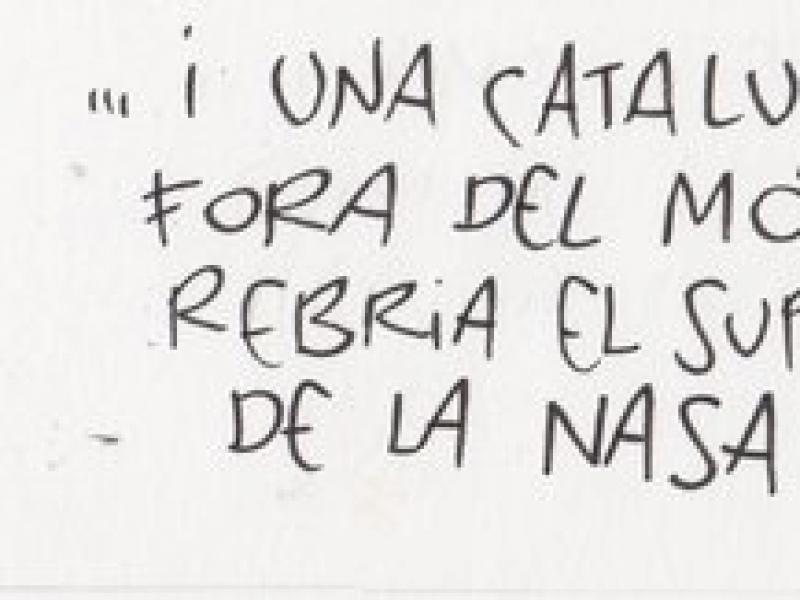 ... i UNA CATALU
FORA DEL MÓ
REBRIA EL SUP
DE LA NASA